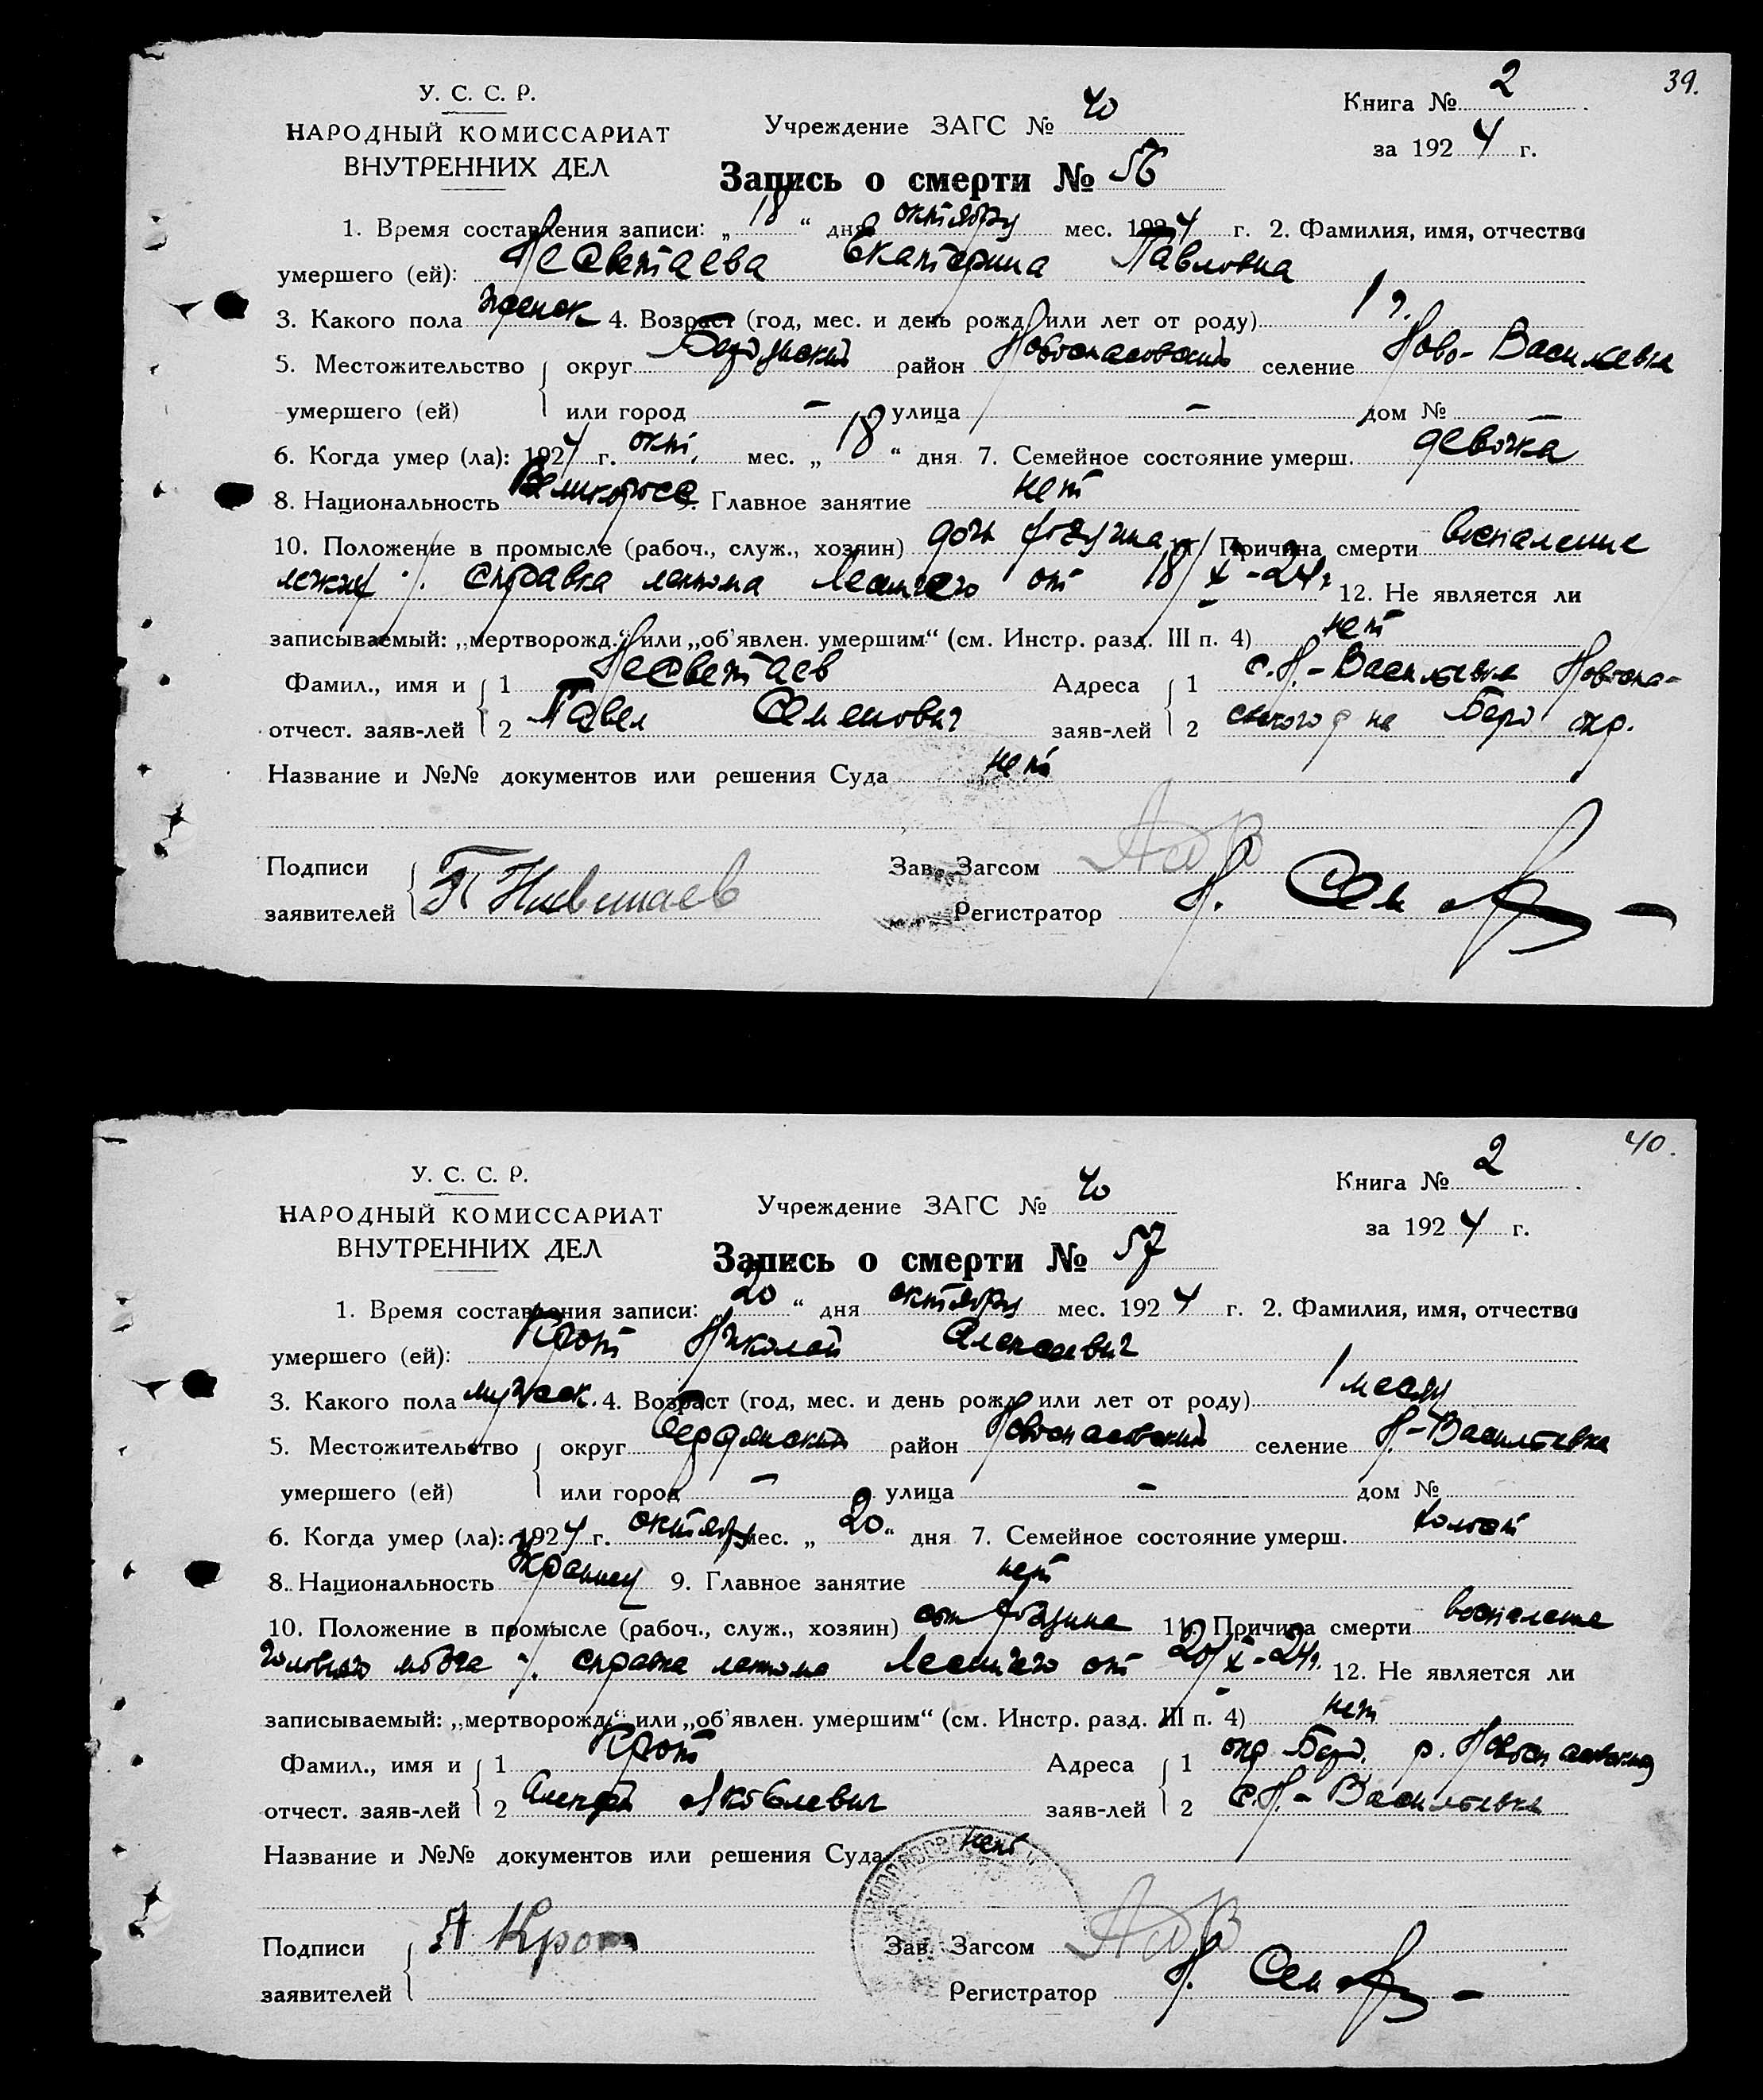 39.
У. С. С. Р.
НАРОДНЫЙ КОМИССАРИАТ
ВНУТРЕННИХ ДЕЛ
Учреждение ЗАГС № 40
Книга № 2
за 1924 г.
Запись о смерти № 56
1. Время составления записи: „18“ дня октября мес. 1924 г. 2. Фамилия, имя, отчество
умершего (ей): Несветаева Екатерина Павловна
3. Какого пола женск 4. Возраст (год, мес. и день рожд. или лет от роду) 1 г.
5. Местожительство округ Бердянский район Новоспасовский селение Ново-Васильевка
умершего (ей) или город – улица – дом № –
6. Когда умер (ла): 1924 г. окт. мес. „18“ дня 7. Семейное состояние умерш. девочка
8. Национальность Великоросс 9. Главное занятие нет
10. Положение в промысле (рабоч., служ., хозяин) дочь 11. Причина смерти воспаление
легких /. справка лекпома от 18/X-24г. 12. Не является ли
записываемый: „мертворожд.“ или „об'явлен. умершим“ (см. Инстр. разд. III п. 4) нет
Фамил., имя и 1 Несветаев Адреса 1 с. Н.-Васильевка Новоспа-
отчест. заяв-лей 2 Павел Семенович заяв-лей 2 р на Берд окр.
Название и №№ документов или решения Суда нет
Подписи П Несветаев Зав. Загсом
заявителей Регистратор Н. Сем
40.
У. С. С. Р.
НАРОДНЫЙ КОМИССАРИАТ
ВНУТРЕННИХ ДЕЛ
Учреждение ЗАГС № 40
Книга № 2
за 1924 г.
Запись о смерти № 57
1. Время составления записи: „20“ дня октября мес. 1924 г. 2. Фамилия, имя, отчество
умершего (ей): Крот Николай Алексеевич
3. Какого пола мужск. 4. Возраст (год, мес. и день рожд. или лет от роду) 1 месяц
5. Местожительство округ Бердянский район Новоспасовский селение Н-Васильевка
умершего (ей) или город – улица – дом №
6. Когда умер (ла): 1924 г. октября мес. „20“ дня 7. Семейное состояние умерш. холост
8. Национальность Украинец 9. Главное занятие нет
10. Положение в промысле (рабоч., служ., хозяин) сын 11. Причина смерти воспаление
головного мозга /. справка лекпома от 20/X-24г. 12. Не является ли
записываемый: „мертворожд.“ или „об'явлен. умершим“ (см. Инстр. разд. III п. 4) нет
Фамил., имя и 1 Крот Адреса 1 окр Берд. р. Новоспасовский
отчест. заяв-лей 2 Алексей Яковлевич заяв-лей 2 с. Н.-Васильевка
Название и №№ документов или решения Суда нет
Подписи А Крот Зав. Загсом
заявителей Регистратор Н. Сем